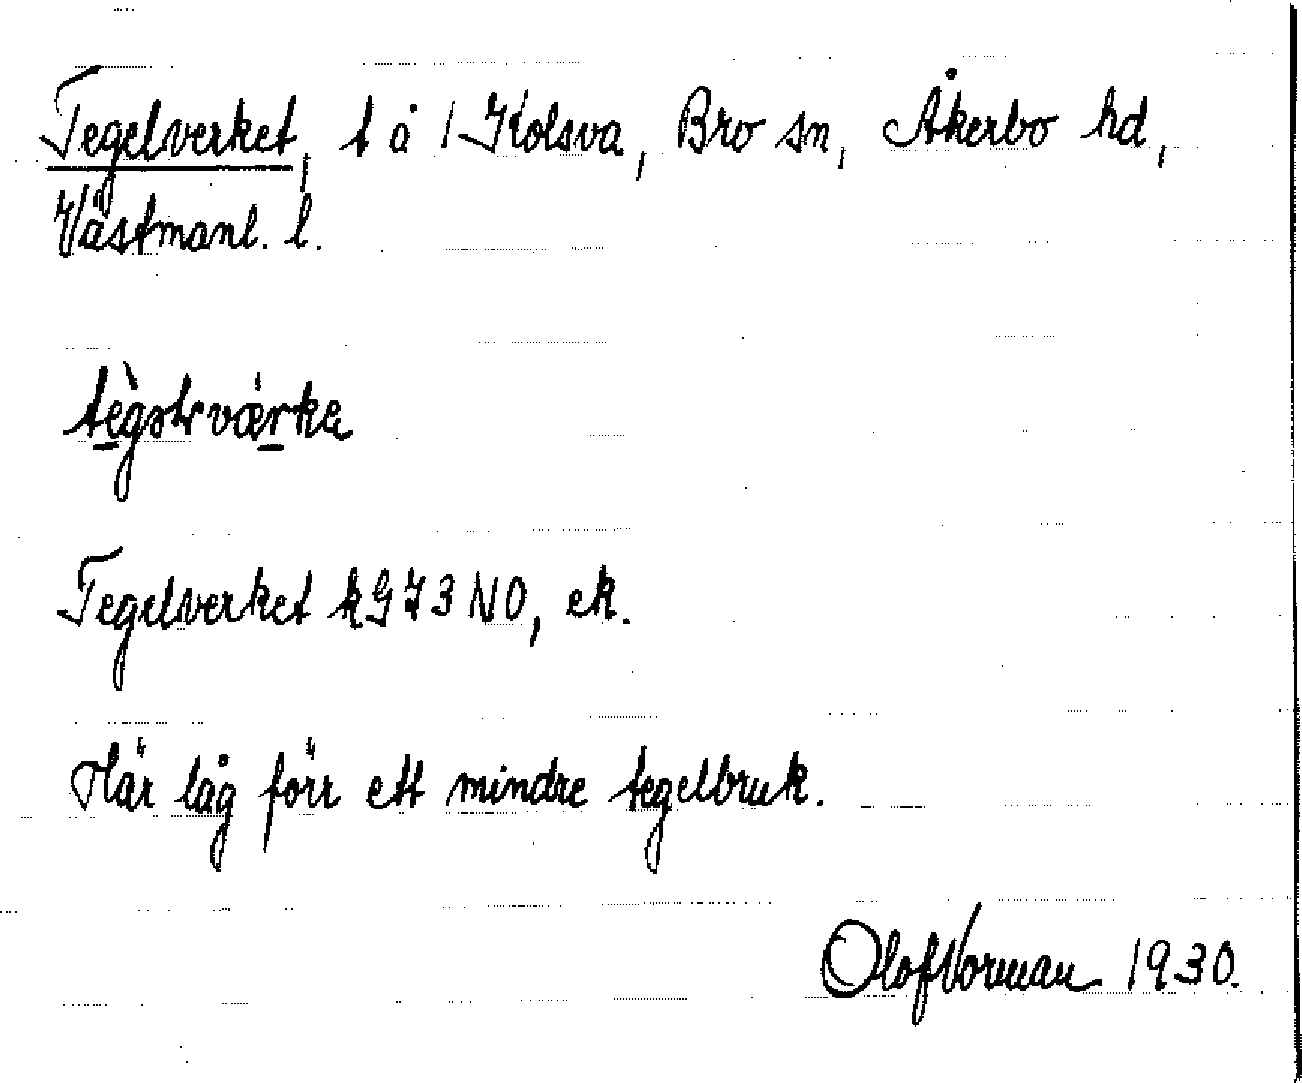 Tegelverket, t å 1 Kolsva, Bro sn, Åkerbo hd,
Västmanl. l.
Tegelverket k973 NO, ek.
Här låg förr ett mindre tegelbruk.
Olof Norman 1930.